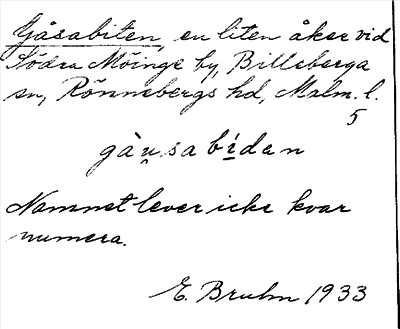 Gåsabiten, en liten åker vid
Södra Möinge by, Billeberga
sn, Rönnebergs hd, Malm. l.
5
gàu̯sabídan
Namnet lever icke kvar
numera.
E. Bruhn 1933